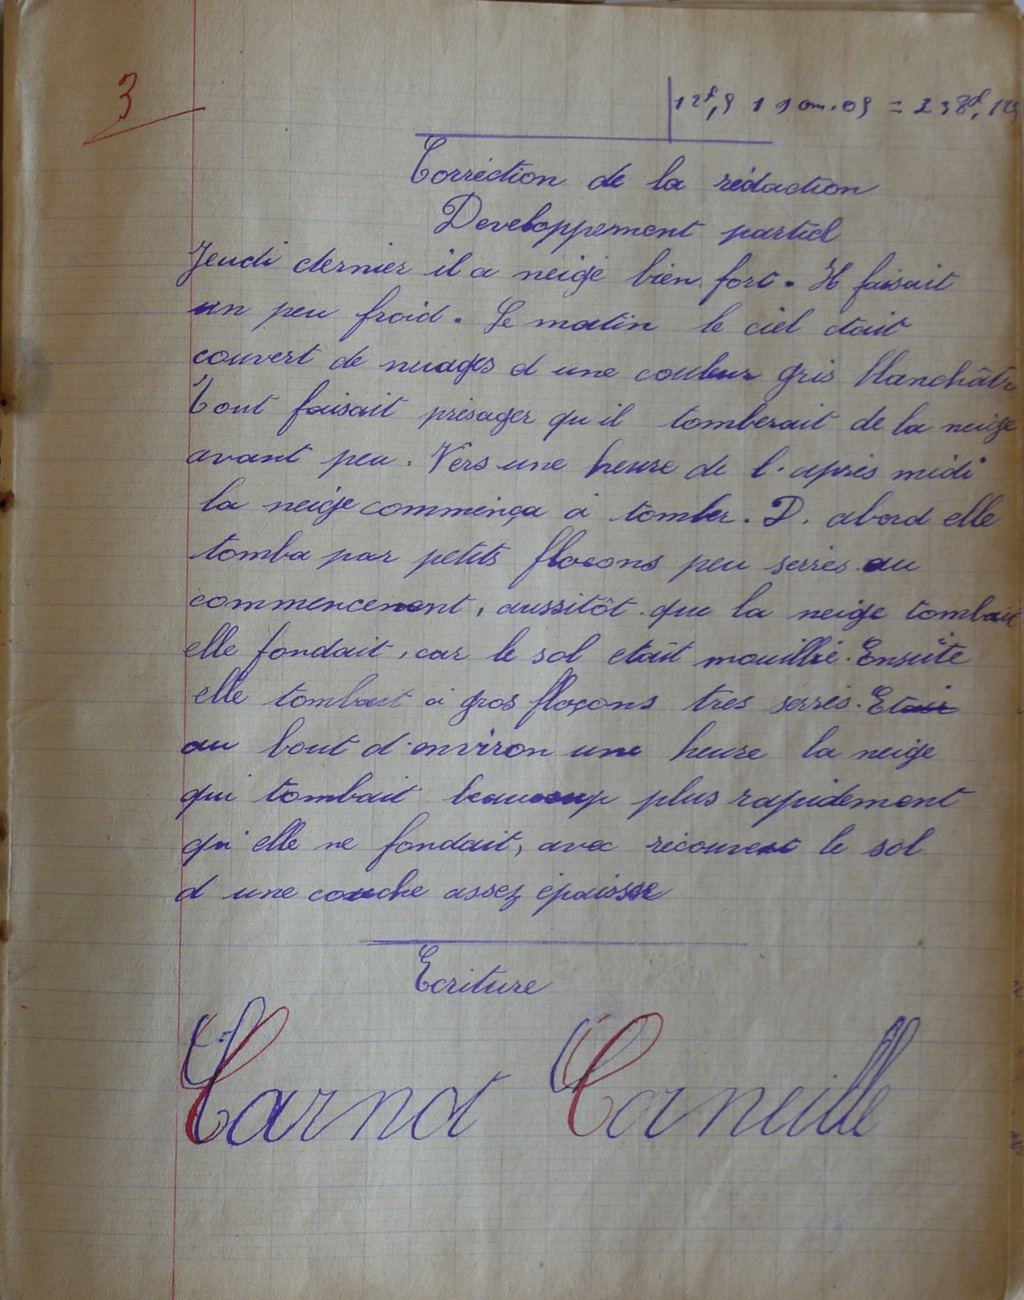 3
Correction de la rédaction
Developpement partiel
Jeudi dernier il a neigé bien fort. Il faisait
un peu froid. Le matin le ciel était
couvert de nuages d une couleur gris blanchâtre
Tout faisait présager qu il tomberait de la neige
avant peu. Vers une heure de l'après midi
la neige commença à tomber. D'abord elle
tomba par petits flocons peu serrés au
commencement, aussitôt que la neige tombait
elle fondait, car le sol était mouillé. Ensuite
elle tombait à gros flocons tres serrés. Etait
au bout d'environ une heure la neige
qui tombait beaucoup plus rapidement
qu'elle ne fondait, avec recouvert le sol
d une couche assez épaisse
Ecriture
Carnot Corneille